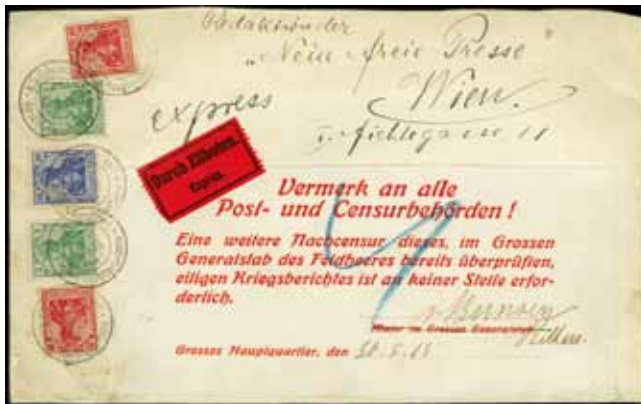 "Neue freie Presse"
Wien.
express
I. Fichtegasse 11
Durch Eilboten.
Expres.
Vermerk an alle
Post- und Censurbehörden!
Eine weitere Nachcensur dieses, im Grossen
Generalstab des Feldheeres bereits überprüften,
eiligen Kriegsberichtes ist an keiner Stelle erfor-
derlich.
Major im Grossen Generalstab
Grosses Hauptquartier, den